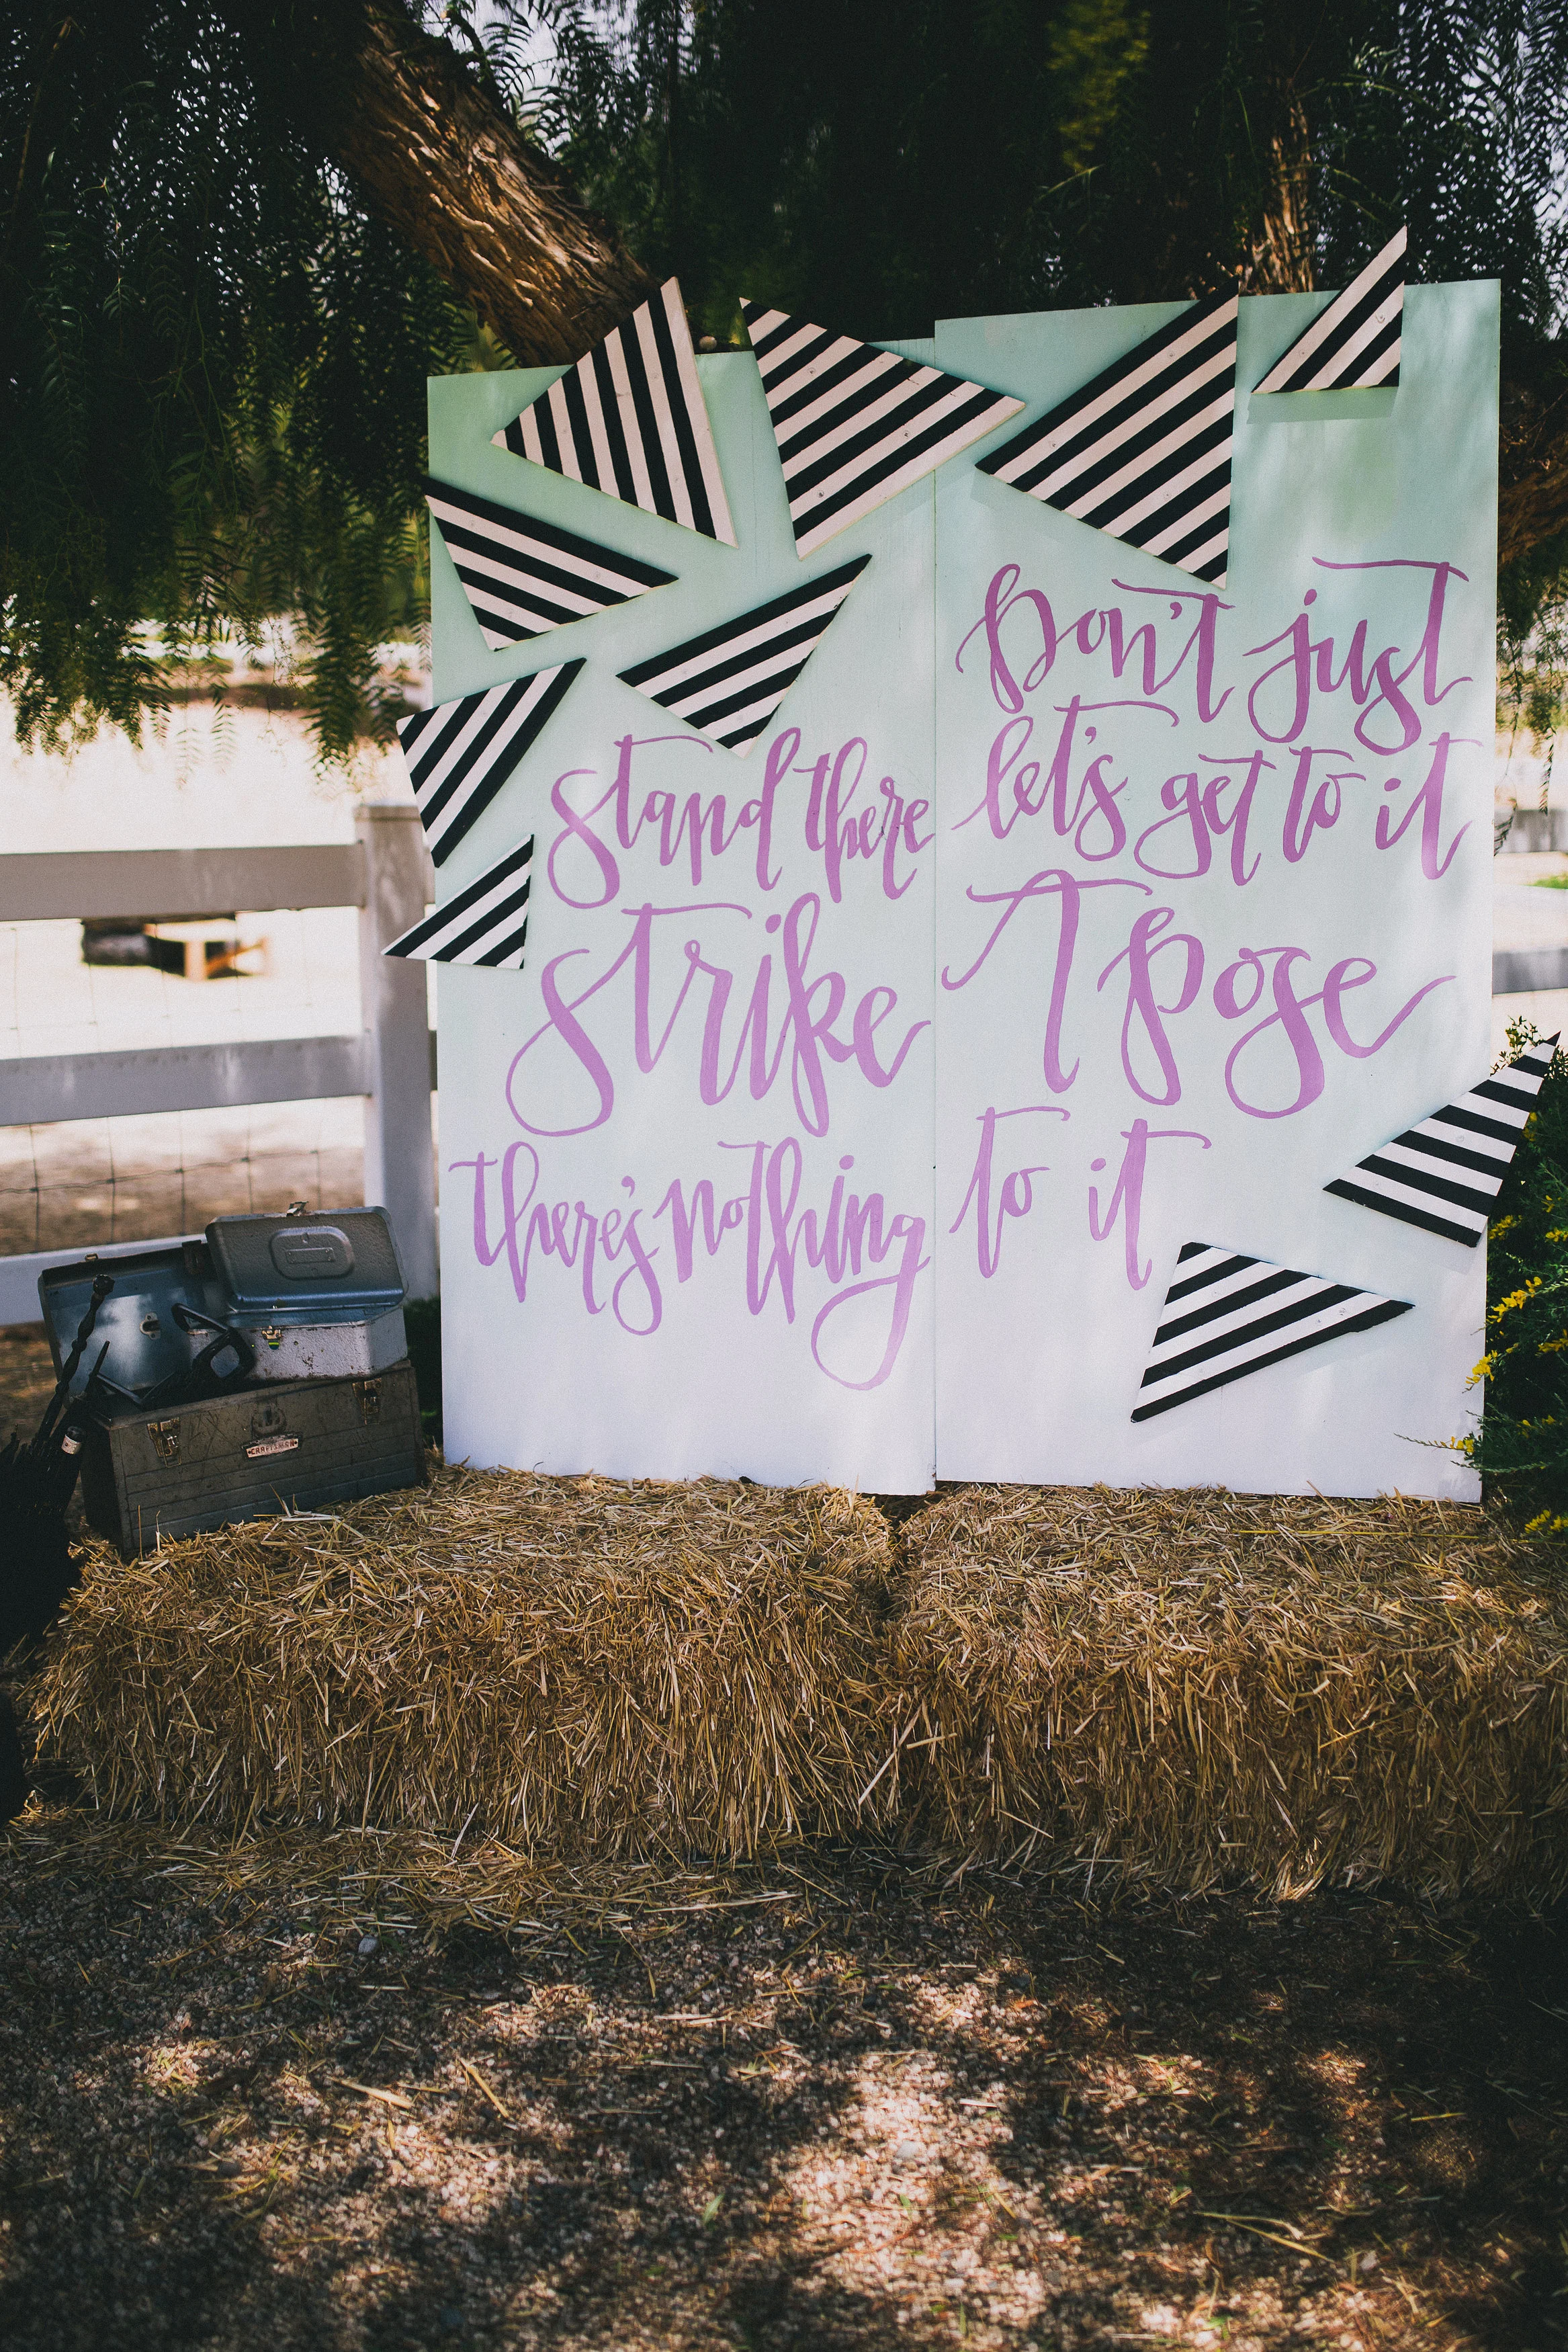 Don't just
stand there let's get to it
strike A pose
there's nothing to it
CRAFTSMAN